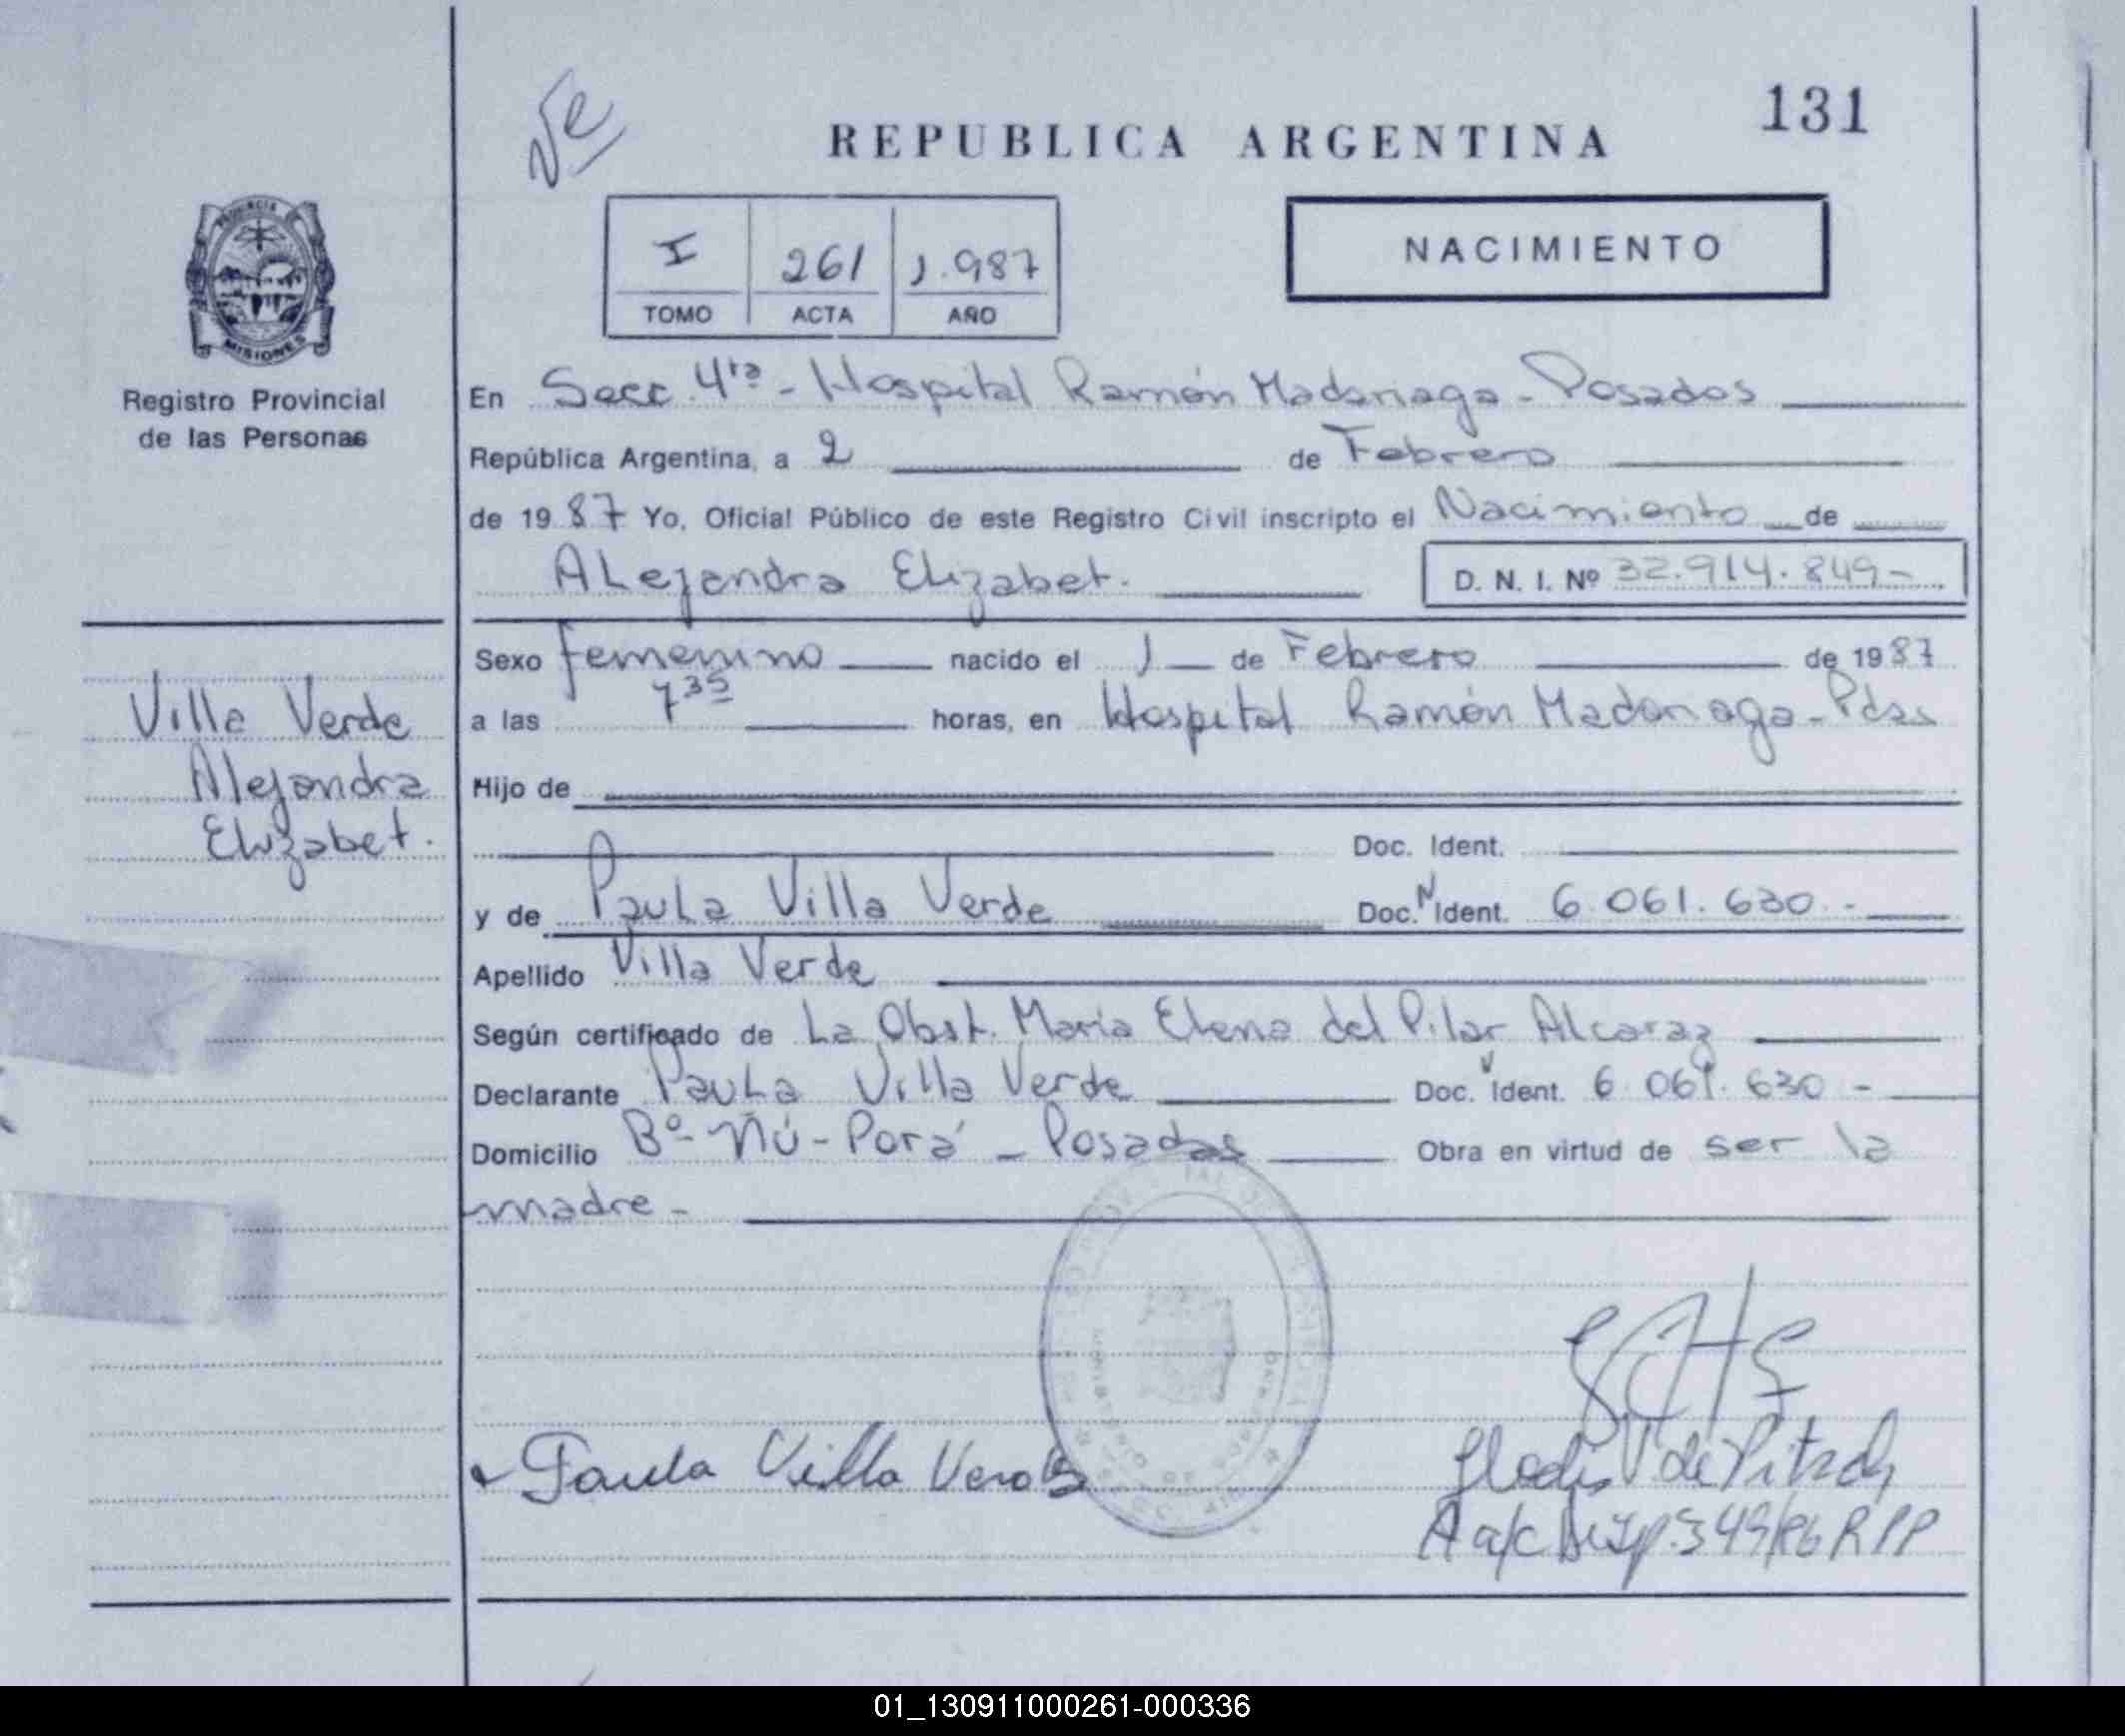 131
REPUBLICA ARGENTINA
I 261 1.987
TOMO ACTA AÑO
NACIMIENTO
PROVINCIA DE
MISIONES
Registro Provincial
de las Personas
En Secc. 4ta - Hospital Ramón Madariaga - Posadas
República Argentina, a 2 de Febrero
de 1987 Yo, Oficial Público de este Registro Civil inscripto el Nacimiento de
Alejandra Elizabet.
D. N. I. Nº 32.914.849-
Sexo femenino nacido el 1 de Febrero de 1987
a las 7 35 horas, en Hospital Ramón Madariaga - Pdas
Hijo de
Doc. Ident.
y de Paula Villa Verde Doc. Ident. 6.061.630.-
Apellido Villa Verde
Según certificado de La Obst. María Elena del Pilar Alcaraz
Declarante Paula Villa Verde Doc. Ident. 6.061.630 -
Domicilio Bº - Ñú - Porá - Posadas Obra en virtud de ser la
madre -
Villa Verde
Alejandra
Elizabet.
Paula Villa Verde
01_130911000261-000336